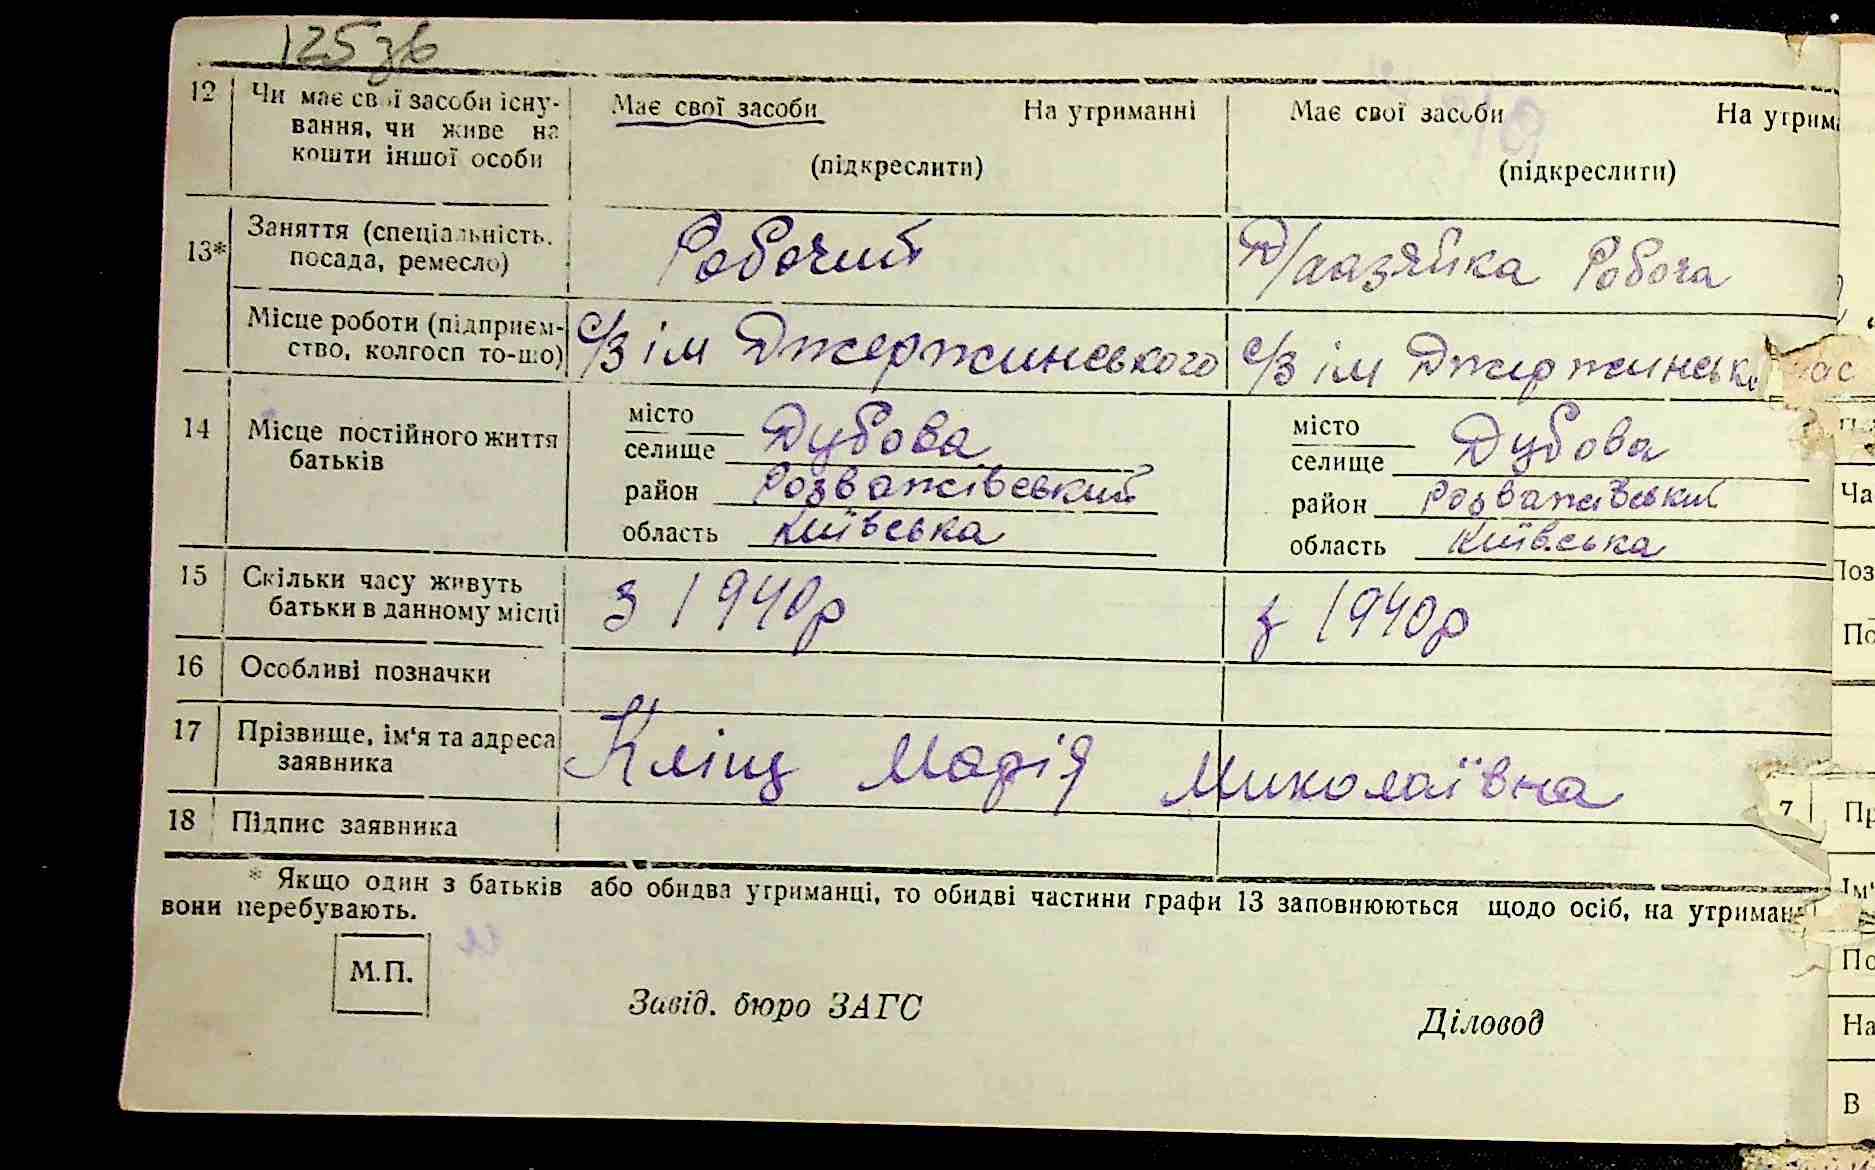 125 зв
12 Чи має свої засоби існу- Має свої засоби На утриманні Має свої засоби На утрима
вання, чи живе на
кошти іншої особи (підкреслити) (підкреслити)
13* Заняття (спеціальність, Робочий Робоча
посада, ремесло)
Місце роботи (підприєм- с/з ім Джержинського с/з ім Джержинськ
ство, колгосп то-що)
14 Місце постійного життя місто Дубова місто Дубова
батьків селище селище
район Розважівський район Розважівський
область Київська область Київська
15 Скільки часу живуть з 1940р з 1940р
батьки в данному місці
16 Особливі позначки
17 Прізвище, ім'я та адреса Кліщ Марія Миколаївна
заявника
18 Підпис заявника
* Якщо один з батьків або обидва утриманці, то обидві частини графи 13 заповнюються щодо осіб, на утриман
вони перебувають.
М.П.
Завід. бюро ЗАГС Діловод
7
Ча
Поз
По
Пр
Ім'
По
На
В